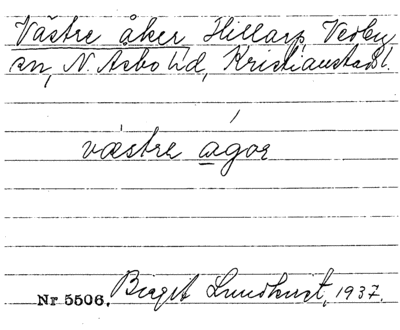 Västre åker, Hillarp, Vedby
sn, N. Åsbo hd, Kristianstad l.
västre agor
Nr 5506. Birgit Lundkvist, 1937.